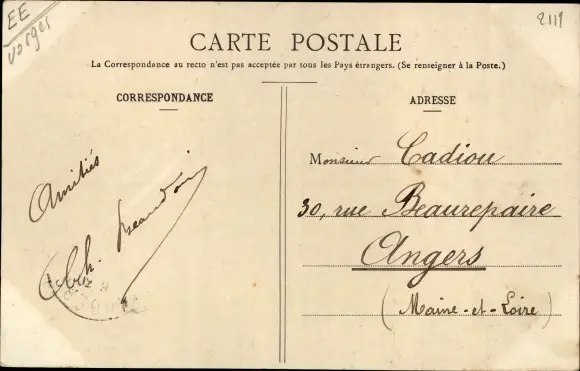 EE
Vosges
2119
CARTE POSTALE
La Correspondance au recto n'est pas acceptée par tous les Pays étrangers. (Se renseigner à la Poste.)
CORRESPONDANCE
Amitiés
Ch.
ADRESSE
Monsieur Cadiou
30, rue Beaurepaire
Angers
(Maine-et-Loire)